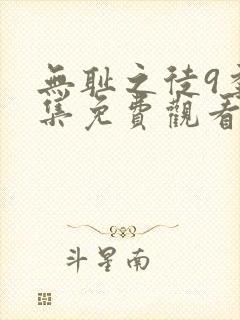 無耻之徒9
集免費觀看
斗星南